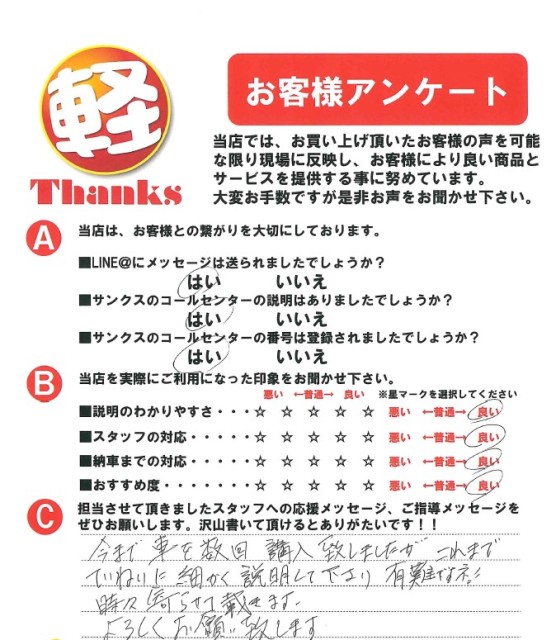 軽
お客様アンケート
Thanks
当店では、お買い上げ頂いたお客様の声を可能
な限り現場に反映し、お客様により良い商品と
サービスを提供する事に努めています。
大変お手数ですが是非お声をお聞かせ下さい。
A 当店は、お客様との繋がりを大切にしております。
■LINE@にメッセージは送られましたでしょうか?
はい いいえ
■サンクスのコールセンターの説明はありましたでしょうか?
はい いいえ
■サンクスのコールセンターの番号は登録されましたでしょうか?
はい いいえ
B 当店を実際にご利用になった印象をお聞かせ下さい。
悪い ←普通→ 良い ※星マークを選択してください
■説明のわかりやすさ・・・☆ ☆ ☆ ☆ ☆ 悪い ←普通→ 良い
■スタッフの対応・・・・・☆ ☆ ☆ ☆ ☆ 悪い ←普通→ 良い
■納車までの対応・・・・・☆ ☆ ☆ ☆ ☆ 悪い ←普通→ 良い
■おすすめ度・・・・・・・☆ ☆ ☆ ☆ ☆ 悪い ←普通→ 良い
C 担当させて頂きましたスタッフへの応援メッセージ、ご指導メッセージを
ぜひお願いします。沢山書いて頂けるとありがたいです!!
今まで 車を数回 購入 致しましたが これまで
ていねいに 細かく 説明して下さり 有難な
時々 寄らせて 載きます。
よろしく お願い 致します